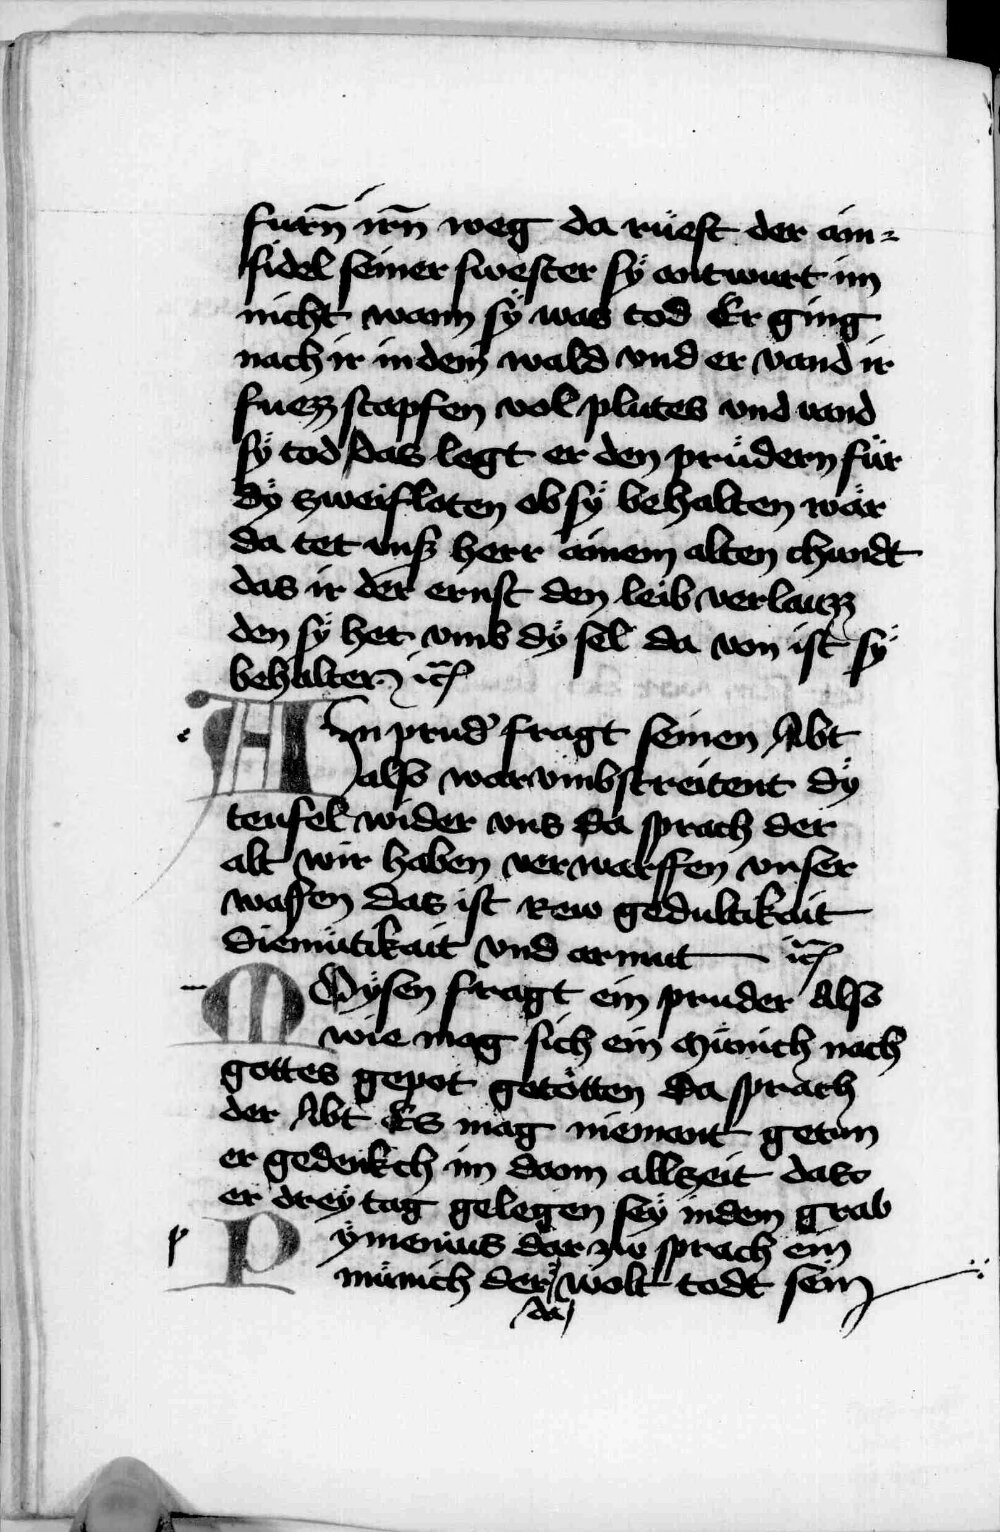 furn̄ irn̄ weg da rueft der ain=
sidel seiner swester sÿ antwurt im
nicht wann sÿ was tod Er ging
nach ir in dem wald vnd er vand ir
fuezz stapfen vol plutes vnd vand
sÿ tod das legt er den prüdern für
dÿ zweifloten ob sÿ behalten wär
da tet vnser herr ainem alten chundt
das ir der ernst den leib verlauzz
den sÿ het vmb dÿ sel da von ist sÿ
behalten ꝛc̄
AIn prud' fragt seinen Abt
also war vmb streitent dÿ
teufel wider vns da sprach der
alt wir haben verwarffen vnser
waffen das ist Rew gedultikait
diemütikait vnd armut ꝛc̄
MOÿsen fragt ein pruder Also
wie mag sich ein münich nach
gottes gepot getötten da sprach
der Abt Es mag niemant getun
er gedenkch im dann allzeit das
er dreÿ tag gelegen seÿ in dem grab
p Pÿmenius dar zw sprach ein
münich der da wolt todt sein